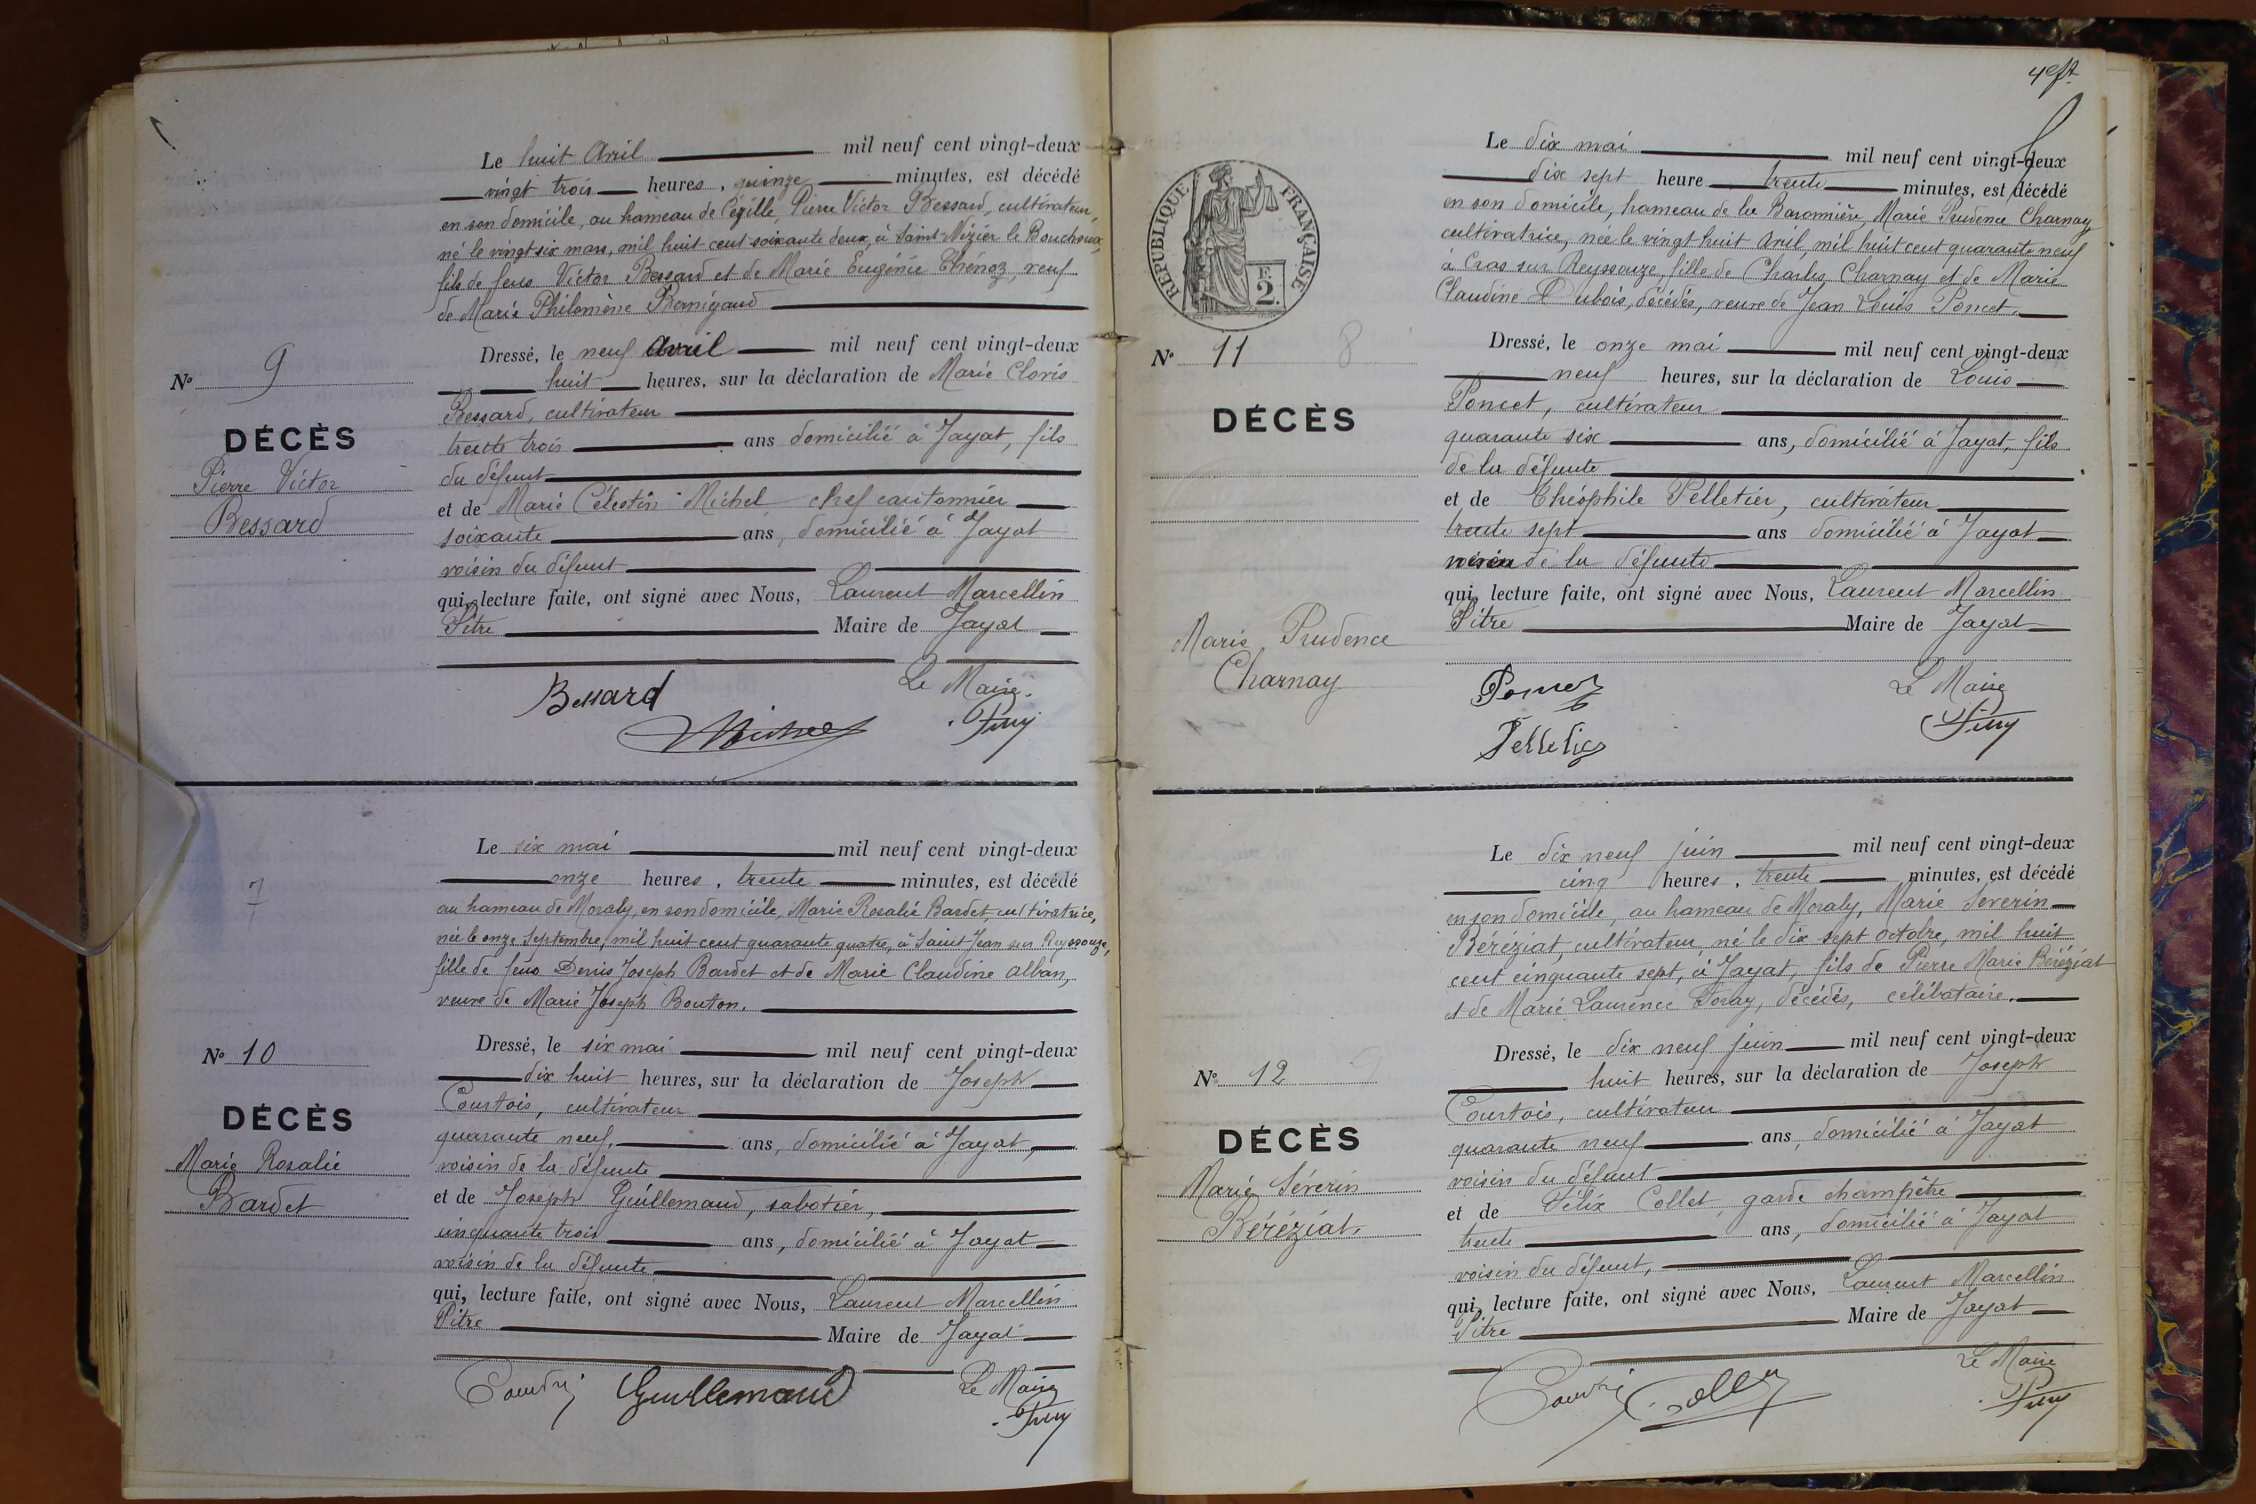 Le huit Avril mil neuf cent vingt-deux
vingt trois heures, quinze minutes, est décédé
en son domicile, au hameau de Pézille, Pierre Victor Bessard, cultivateur,
né le vingt six mars, mil huit cent soixante deux, à Saint Nizier le Bouchoux,
fils de feus Victor Bessard et de Marie Eugénie Thénoz, veuf
de Marie Philomène Bernigaud
Dressé, le neuf Avril mil neuf cent vingt-deux
huit heures, sur la déclaration de Marie Clovis
Bessard, cultivateur
trente trois ans domicilié à Jayat, fils
du défunt
et de Marie Célestin Michel chef cantonnier
soixante ans, domicilié à Jayat
voisin du défunt
qui, lecture faite, ont signé avec Nous, Laurent Marcellin
Pitre Maire de Jayat
Bessard
Michel
Le Maire
Pitre
N° 9
DÉCÈS
Pierre Victor
Bessard
Le six mai mil neuf cent vingt-deux
onze heures, trente minutes, est décédé
au hameau de Moraly, en son domicile, Marie Rosalie Bardet, cultivatrice,
née le onze Septembre, mil huit cent quarante quatre, à Saint Jean sur Reyssouze,
fille de feus Denis Joseph Bardet et de Marie Claudine Alban,
veuve de Marie Joseph Bouton.
Dressé, le six mai mil neuf cent vingt-deux
dix huit heures, sur la déclaration de Joseph
Courtois, cultivateur
quarante neuf, ans, domicilié à Jayat,
voisin de la défunte
et de Joseph Guillemaud, sabotier,
cinquante trois ans, domicilié à Jayat
voisin de la défunte
qui, lecture faite, ont signé avec Nous, Laurent Marcellin
Pitre Maire de Jayat
Guillemaud
Le Maire
Pitre
7
N° 10
DÉCÈS
Marie Rosalie
Bardet
4
RÉPUBLIQUE FRANÇAISE
F.
2.
Le dix mai mil neuf cent vingt-deux
dix sept heure trente minutes, est décédé
en son domicile, hameau de la Baronnière, Marie Prudence Charnay,
cultivatrice, née le vingt huit Avril, mil huit cent quarante neuf
à Cras sur Reyssouze, fille de Charles Charnay et de Marie
Claudine Dubois, décédés, veuve de Jean Louis Poncet.
Dressé, le onze mai mil neuf cent vingt-deux
neuf heures, sur la déclaration de Louis
Poncet, cultivateur
quarante six ans, domicilié à Jayat, fils
de la défunte
et de Théophile Pelletier, cultivateur
trente sept ans domicilié à Jayat
voisin de la défunte
qui, lecture faite, ont signé avec Nous, Laurent Marcellin
Pitre Maire de Jayat
Poncet
Pelletier
Le Maire
Pitre
N° 11 8
DÉCÈS
Marie Prudence
Charnay
Le dix neuf juin mil neuf cent vingt-deux
cinq heures, trente minutes, est décédé
en son domicile, au hameau de Moraly, Marie Séverin
Béréziat, cultivateur, né le dix sept octobre, mil huit
cent cinquante sept, à Jayat, fils de Pierre Marie Béréziat
et de Marie Laurence Foray, décédés, célibataire.
Dressé, le dix neuf juin mil neuf cent vingt-deux
huit heures, sur la déclaration de Joseph
Courtois, cultivateur
quarante neuf ans, domicilié à Jayat
voisin du défunt
et de Félix Collet, garde champêtre
trente ans, domicilié à Jayat
voisin du défunt,
qui, lecture faite, ont signé avec Nous, Laurent Marcellin
Pitre Maire de Jayat
Collet
Le Maire
Pitre
N° 12
DÉCÈS
Marie Séverin
Béréziat.